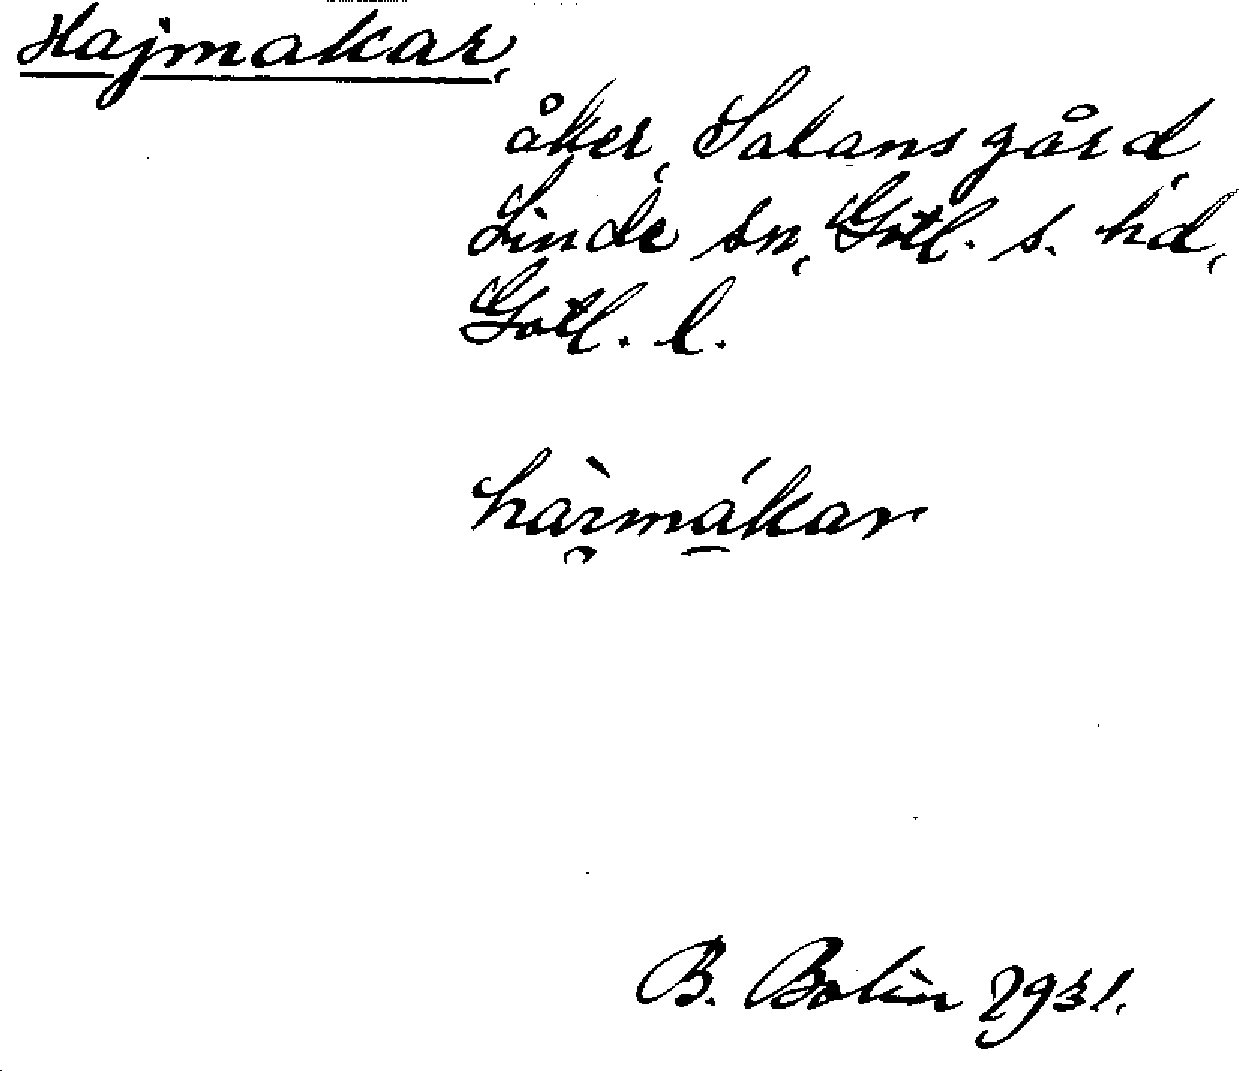 Hajmakar,
åker, Salansgård,
Linde sn, Gotl. s. hd,
Gotl. l.
hàrmákar
B. Bolin 1931.